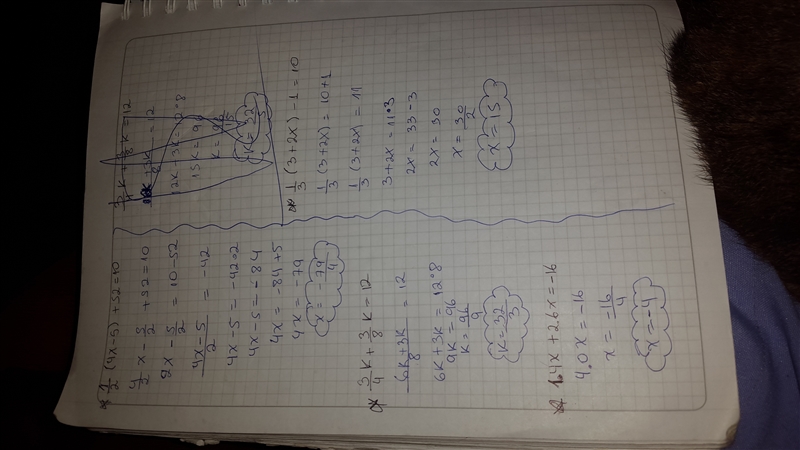 * 1/2 (4x-5) +52=10
4/2 x - 5/2 +52=10
2x - 5/2 = 10-52
4x-5/2 = -42
4x-5 = -42·2
4x-5=-84
4x = -84+5
4x=-79
x = -79/4
* 3/4 k + 3/8 k = 12
6k+3k/8 = 12
6k+3k = 12·8
9k=96
k= 96/9
k= 32/3
* 1.4x + 2.6x = -16
4.0x = -16
x = -16/4
x = -4
3/4 k + 3/8 k = 12
12k+3k = 12·8
15k = 96
k = 96/15
k = 32/5
* 1/3 (3+2x) - 1 = 10
1/3 (3+2x) = 10+1
1/3 (3+2x) = 11
3+2x = 11·3
2x = 33-3
2x = 30
x = 30/2
x = 15